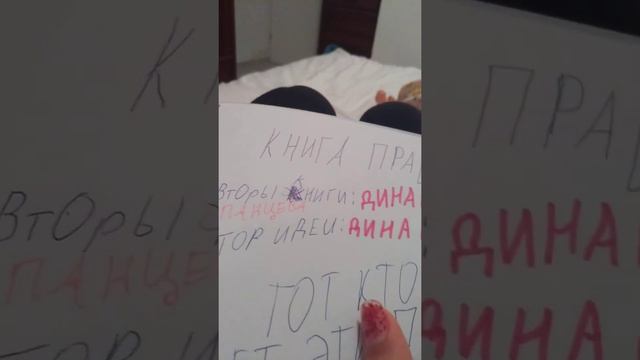 КНИГА ПРА
ВТОРЫ КНИГИ: ДИНА
ПАНЦЕВА
ТОР ИДЕИ: ДИНА
ТОТ КТО